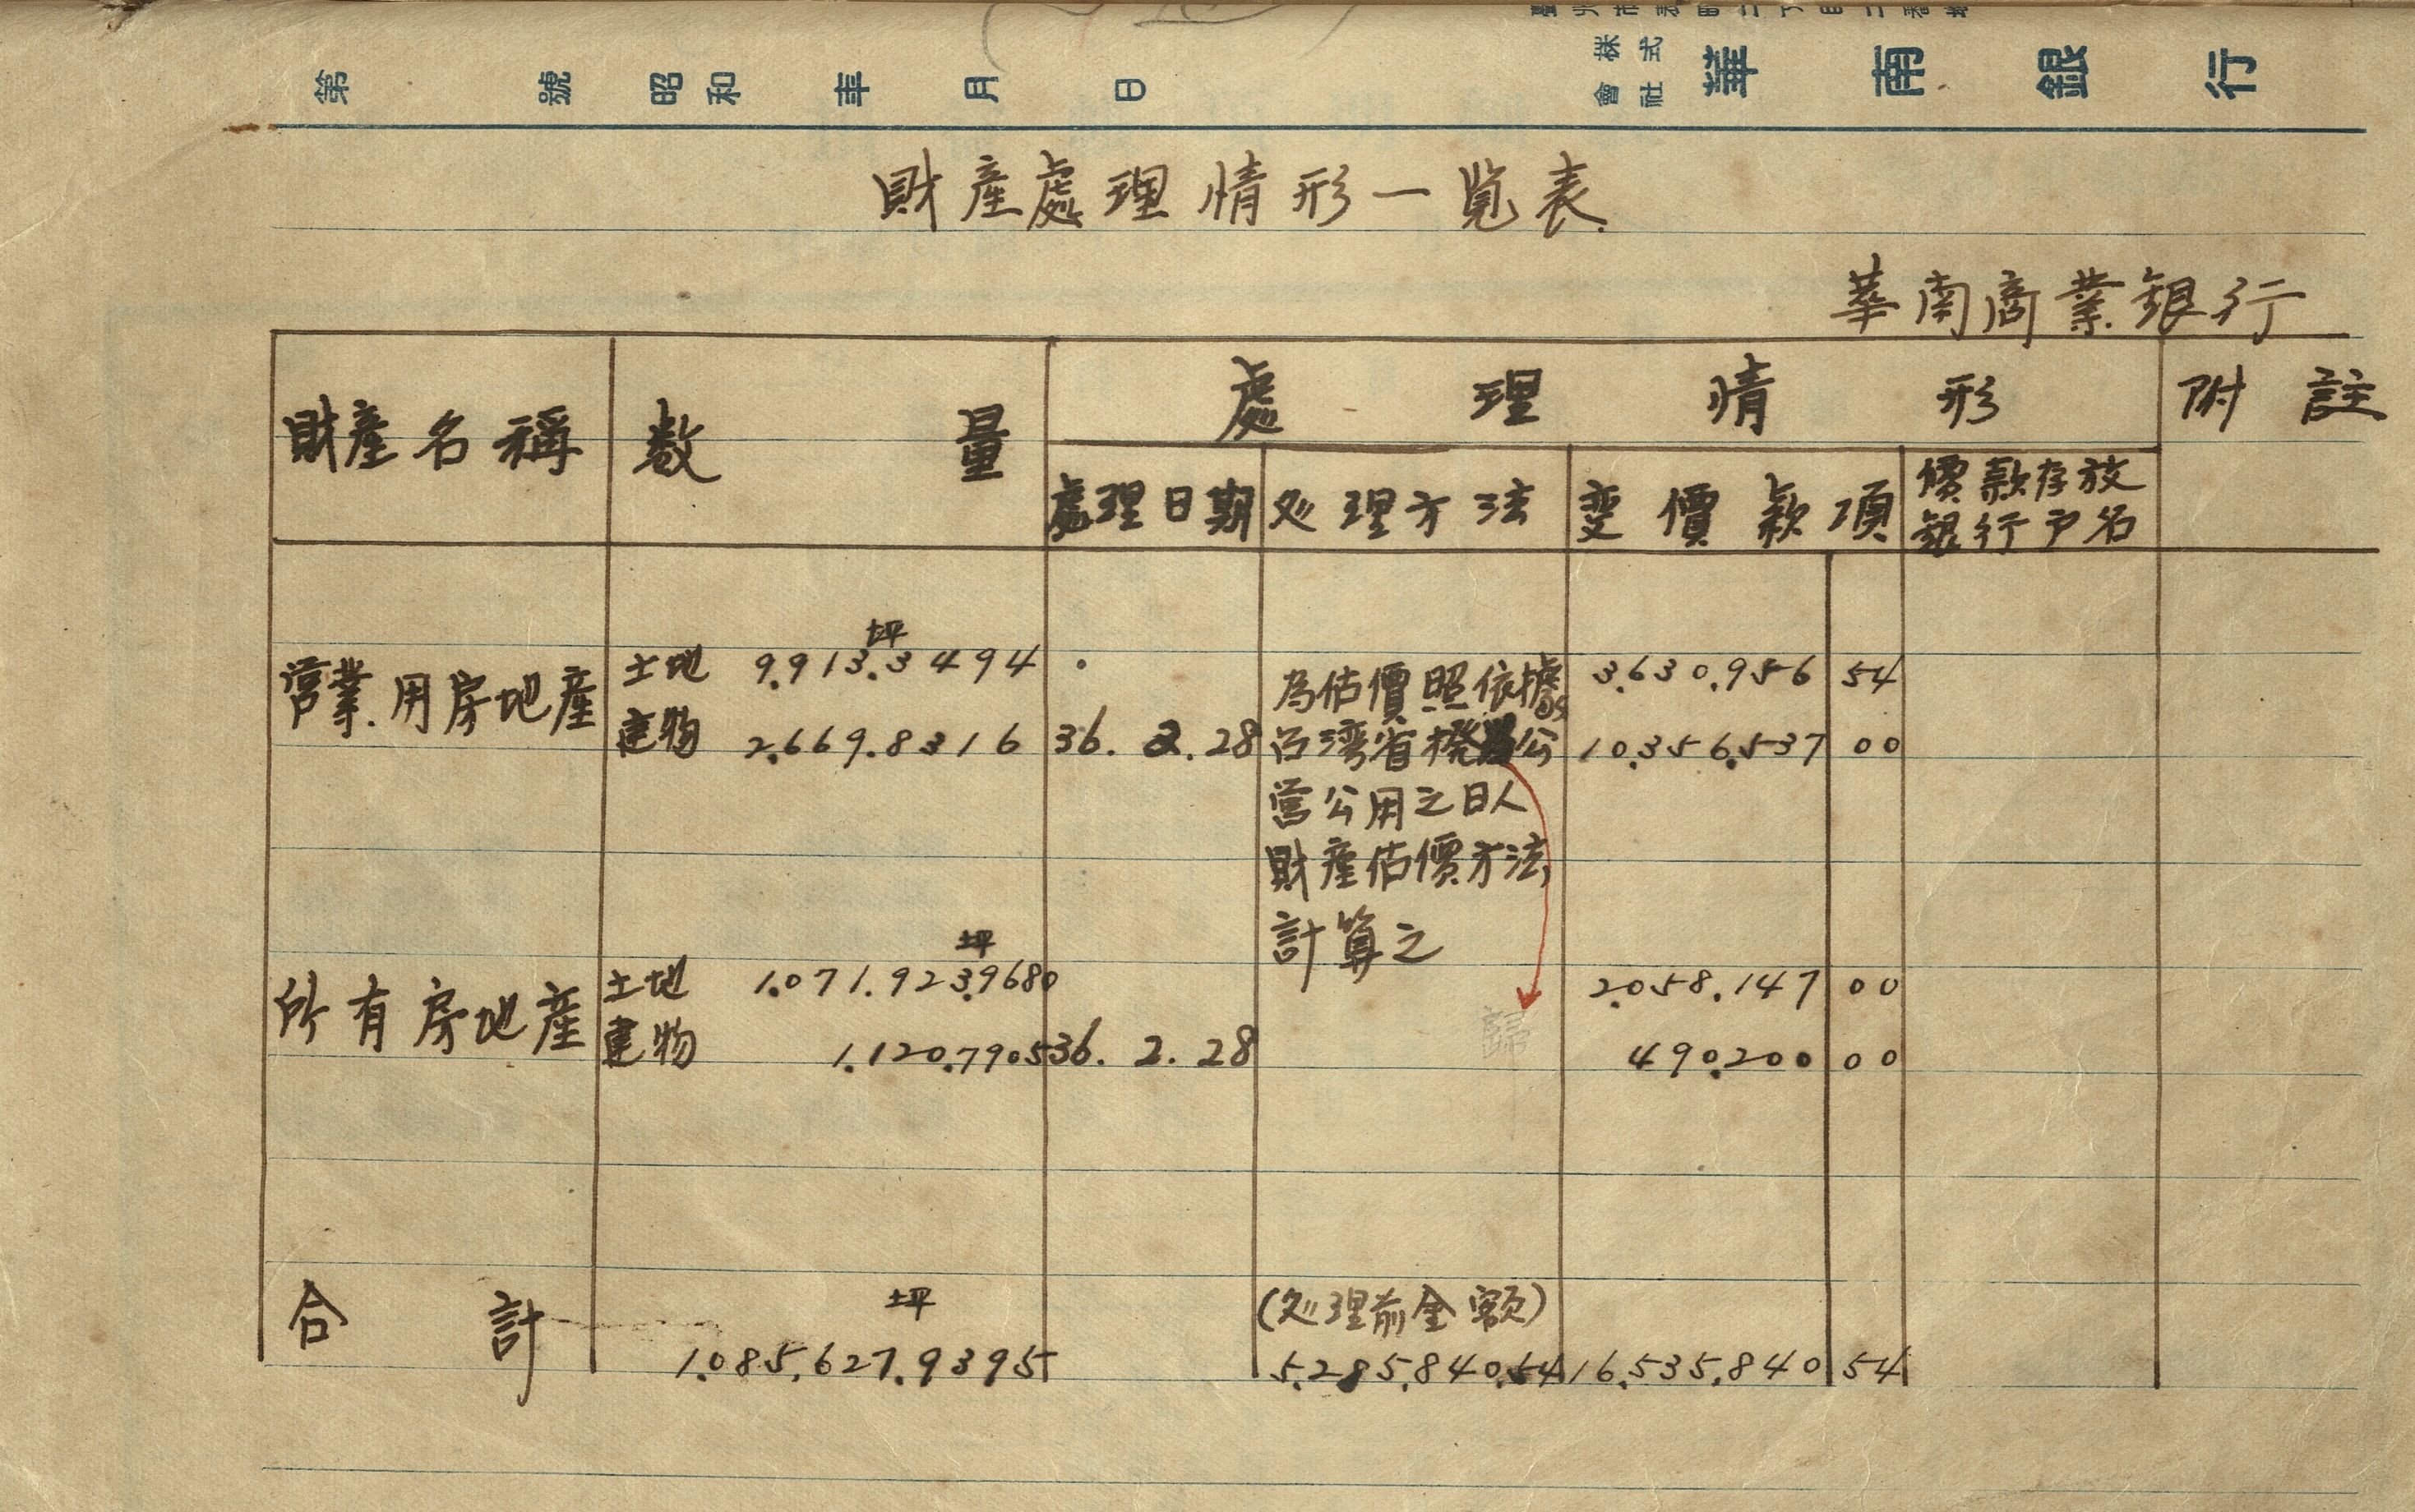 第 號 昭和 年 月 日
株式會社 華南銀行
財產處理情形一覧表
華南商業銀行
財產名稱 数量 處理情形 附註
處理日期 処理方法 变價款項 價款存放銀行户名
坪
营業用房地產 土地 9.913.3494 為估價照依據 3.630.956 54
建物 2.669.8316 36. 2. 28 台湾省撥公 10.356.537 00
营公用之日人
財產估價方法
計算之
坪
所有房地產 土地 1.071.923.9680 2.058.147 00
歸
建物 1.120.7905 36. 2. 28 490.200 00
坪 (処理前金額)
合計 1.085.627.9395 5.285.840.54 16.535.840 54